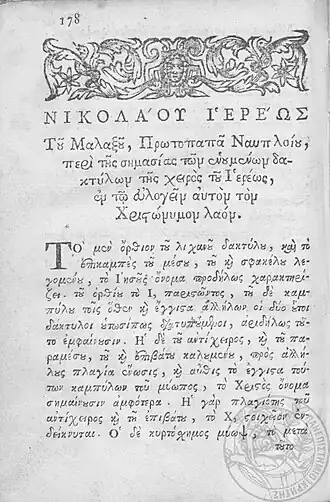 178
ΝΙΚΟΛΑ´ΟΥ Ι῾ΕΡΕ´ΩΣ
Τοῦ Μαλαξοῦ, Πρωτοπαπᾶ Ναυπλίου,
περὶ τῆς σημασίας τῶν ἑνουμένων δα-
κτύλων τῆς χειρὸς τοῦ Ἱερέως,
ἐν τῷ εὐλογεῖν αὐτὸν τὸν
Χριστώνυμον λαόν.
ΤΟ` μὲν ὄρθιον τοῦ λιχανοῦ δακτύλου, καὶ τὸ
ἐπικαμπὲς τοῦ μέσου, τοῦ καὶ σφακέλου λε-
γομένου, τὸ Ἰησοῦς ὄνομα προδήλως χαρακτηρί-
ζει. τοῦ ὀρθίου τὸ Ι, παριστῶντος, τοῦ δὲ καμ-
πύλου τὸ
δάκτυλοι
το ἐμφαίνουσιν. Ἡ δὲ τοῦ ἀντίχειρος, καὶ τοῦ πα-
ραμέσου, τοῦ καὶ ἐπιβάτου καλουμένου, πρὸς ἀλλή-
λους πλαγία ἕνωσις, καὶ αὖθις τὸ ἔγγιστα τού-
των καμπύλον τοῦ μύωπος, τὸ Χριστὸς ὄνομα
σημαίνουσιν ἀμφότερα. Ἡ γὰρ πλαγιότης τοῦ
ἀντίχειρος καὶ τοῦ ἐπιβάτου, τὸ Χ, στοιχεῖον ἐν-
δείκνυται. Ὁ δὲ κυρτόσχημος μύωψ, τὸ μετὰ
τοῦτο